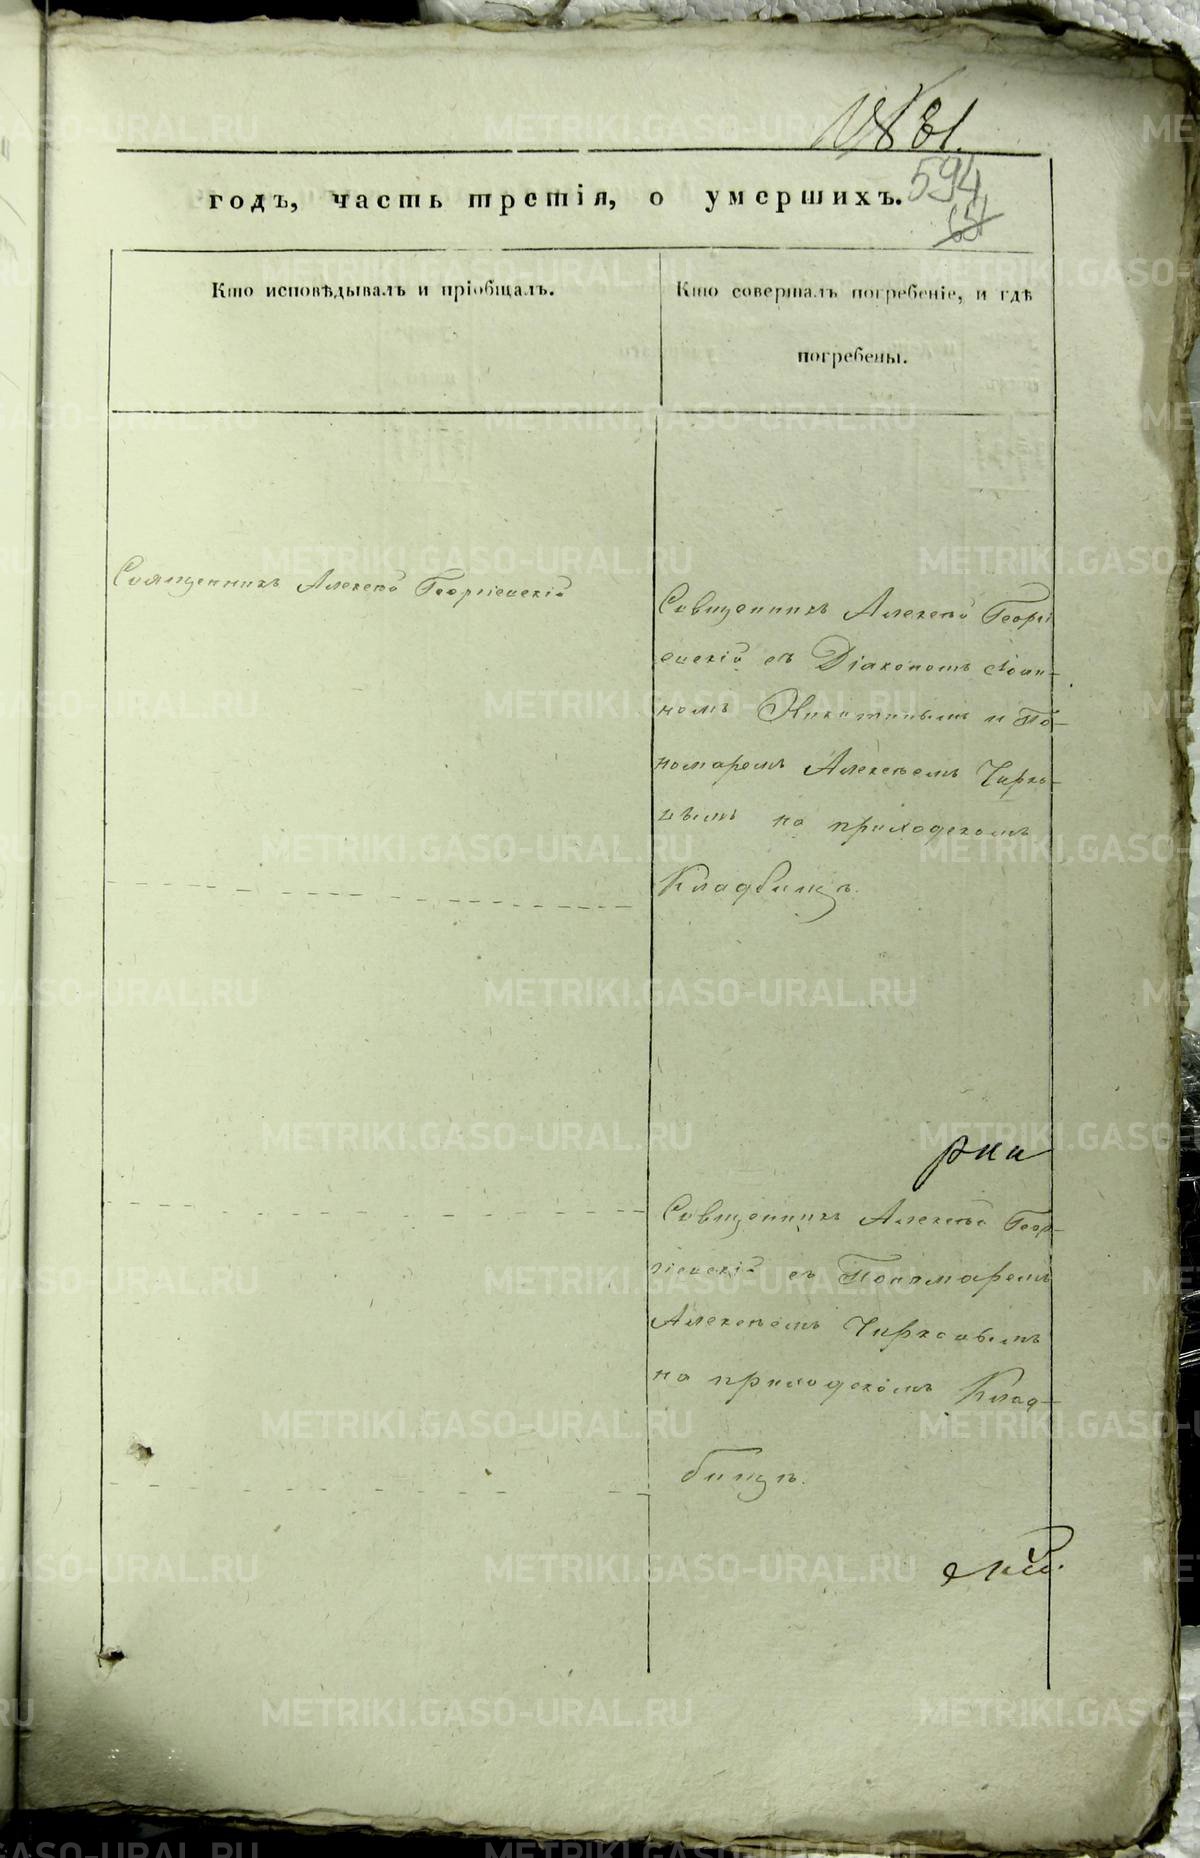 594
годъ, часть третія, о умершихъ.
Кто исповѣдывалъ и пріобщалъ.
Кто совершалъ погребеніе, и гдѣ
погребены.
Священникъ Алексѣй Георгіевскій
Священникъ Алексѣй Георгі
евскій съ Діакономъ Іоан-
номъ Никитинымъ и По-
номаремъ Алексѣемъ Чирко-
вымъ на приходскомъ
Кладбищѣ.
Священникъ Алексѣй Геор-
гіевскій съ Пономаремъ
Алексѣемъ Чирковымъ
на приходскомъ Клад-
бищѣ.
METRIKI.GASO-URAL.RU